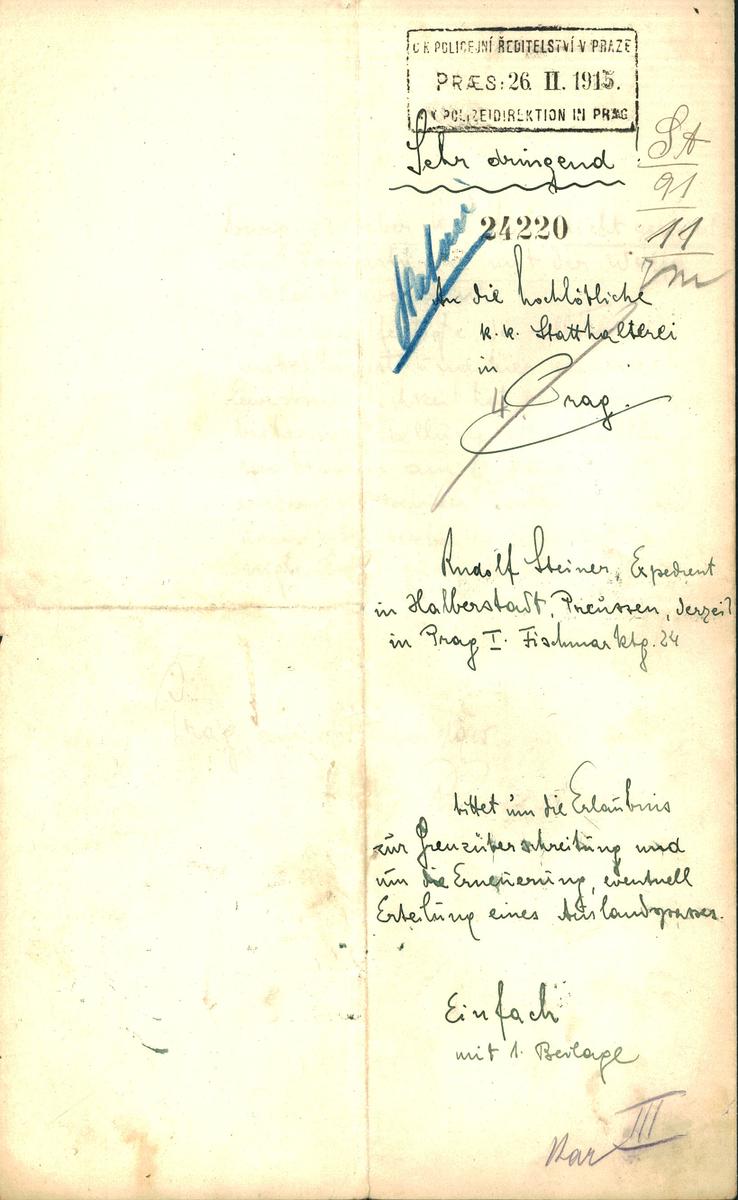 C K POLICEJNÍ ŘEDITELSTVÍ V PRAZE
PRÆS: 26. II. 1915.
K POLIZEIDIREKTION IN PRAG
Sehr dringend
St
91
11
24220
An die hochlöbliche
k.k. Statthalterei
in
Prag.
Rudolf Steiner, Expedient
in Halberstadt, Preussen, derzeit
in Prag I. Fischmarktg. 24
bittet um die Erlaubnis
zur Grenzüberschreitung und
um die Erneuerung, eventuell
Erteilung eines Auslandspasses.
Einfach
mit 1. Beilage
III